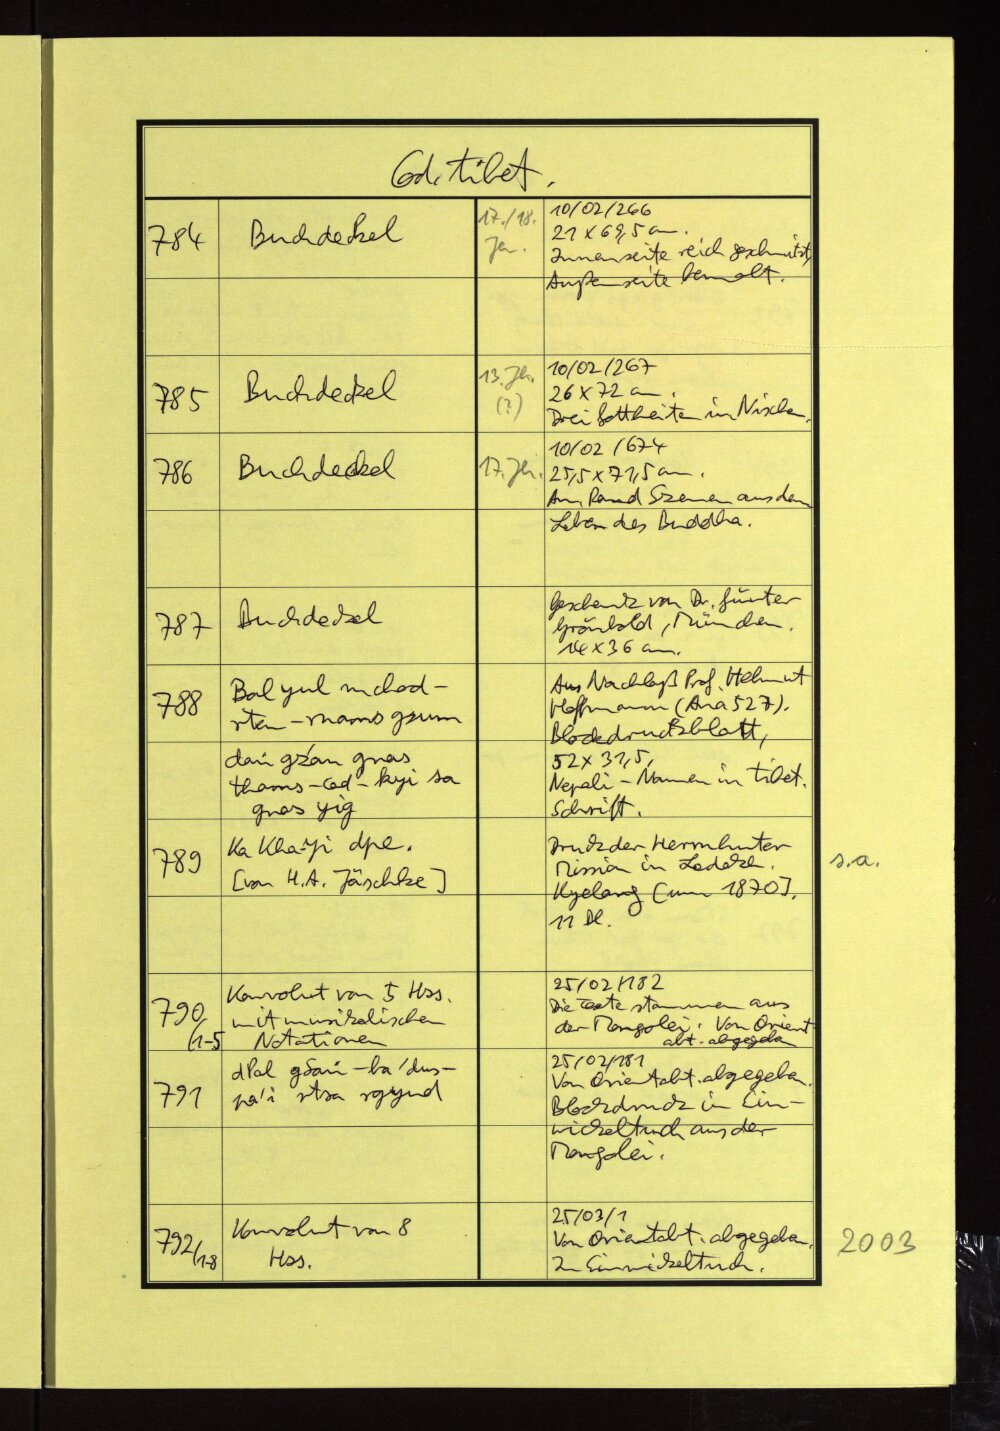 Cod. tibet.
784
Buchdeckel
17./18.
Jh.
10/02/266
21 x 69,5 cm.
Innenseite reich geschnitzt,
Außenseite bemalt.
785
Buchdeckel
13. Jh.
(?)
10/02/267
26 x 72 cm.
Drei Gottheiten in Nischen.
786
Buchdeckel
17. Jh.
10/02/674
25,5 x 71,5 cm.
Am Rand Szenen aus dem
Leben des Buddha.
787
Buchdeckel
Geschenk von Dr. Günter
Grönbold, München.
14 x 36 cm.
788
Bal yul mchod-
rten-rnams gsum
dań gźan gnas
thams-cad-kyi sa
gnas yig
Aus Nachlaß Prof. Helmut
Hoffmann (Ana 527).
Blockdruckblatt,
52 x 31,5,
Nepali-Namen in tibet.
Schrift.
789
Ka Kha-yi dpe.
[von H.A. Jäschke]
Druck der Herrnhuter
Mission in Ladakh.
Kyelang [um 1870].
11 Bl.
s.a.
790
/1-5
Konvolut von 5 Hss.
mit musikalischen
Notationen
25/02/182
Die Texte stammen aus
der Mongolei. Von Orient
abt. abgegeben
791
dPal gSań-ba 'dus-
pa'i rtsa rgyud
25/02/181
Von Orientabt. abgegeben.
Blockdruck in Ein-
wickeltuch aus der
Mongolei.
792/1-8
Konvolut von 8
Hss.
25/03/1
Von Orientabt. abgegeben.
In Einwickeltuch.
2003